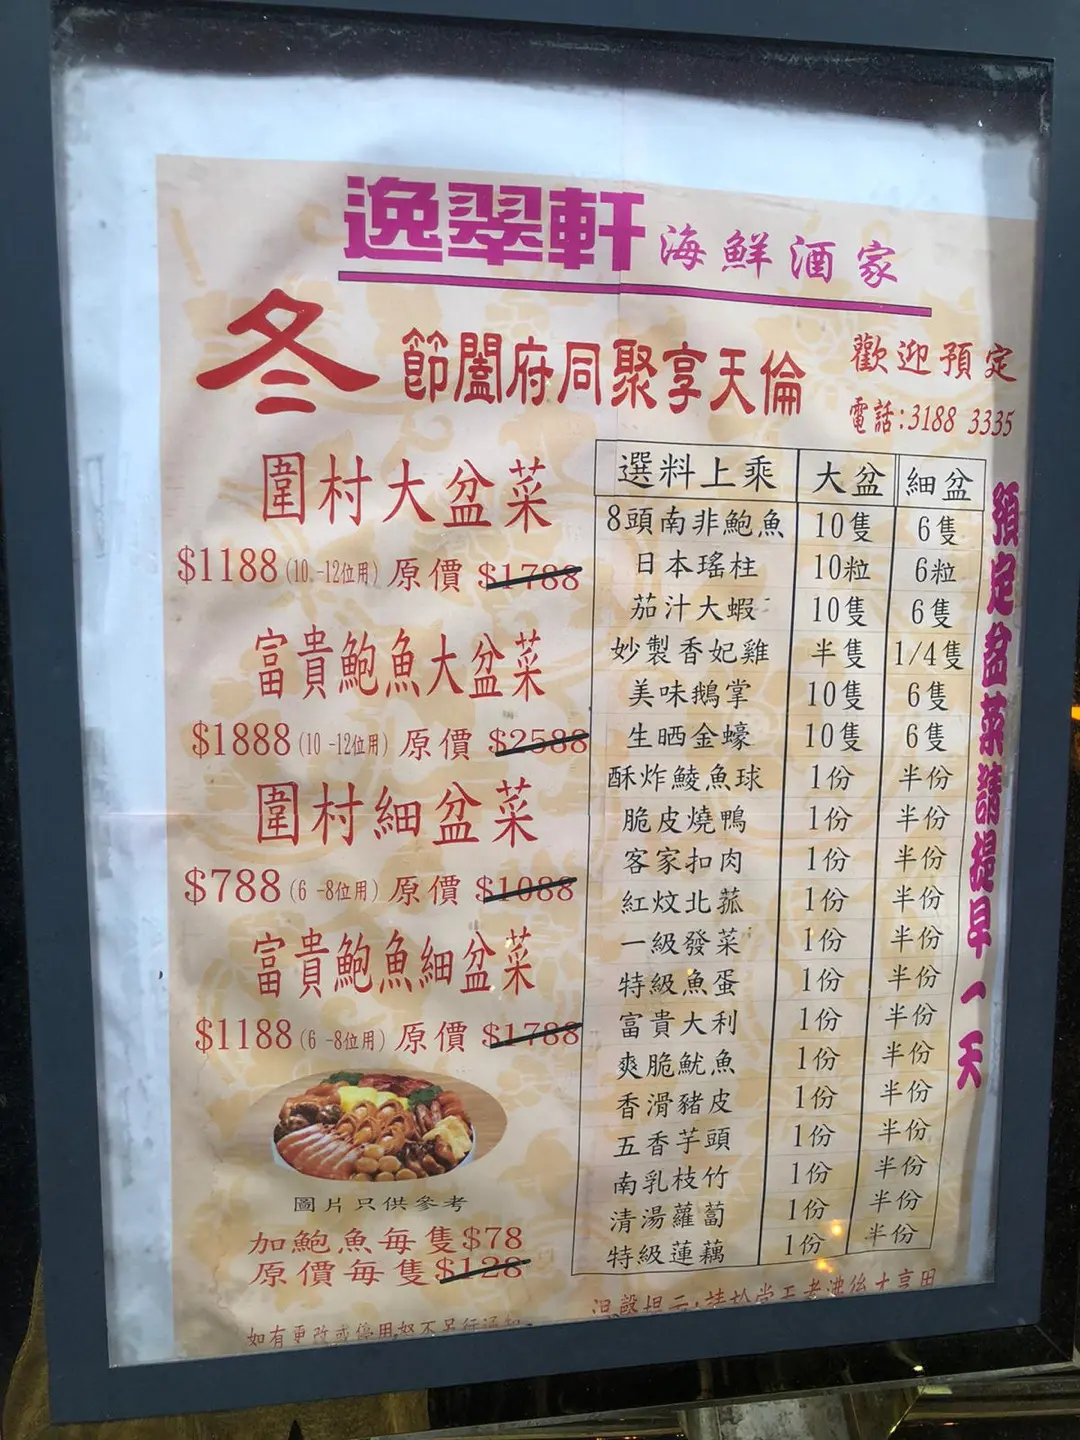 逸翠軒 海鮮酒家
冬節闔府同聚享天倫
歡迎預定
電話:3188 3335
圍村大盆菜
$1188(10-12位用) 原價 $1788
富貴鮑魚大盆菜
$1888(10-12位用) 原價 $2588
圍村細盆菜
$788(6-8位用) 原價 $1088
富貴鮑魚細盆菜
$1188(6-8位用) 原價 $1788
圖片只供參考
加鮑魚每隻$78
原價每隻$128
如有更改或停用,恕不另行通知
選料上乘 大盆 細盆
8頭南非鮑魚 10隻 6隻
日本瑤柱 10粒 6粒
茄汁大蝦 10隻 6隻
妙製香妃雞 半隻 1/4隻
美味鵝掌 10隻 6隻
生晒金蠔 10隻 6隻
酥炸鯪魚球 1份 半份
脆皮燒鴨 1份 半份
客家扣肉 1份 半份
紅炆北菰 1份 半份
一級發菜 1份 半份
特級魚蛋 1份 半份
富貴大利 1份 半份
爽脆魷魚 1份 半份
香滑豬皮 1份 半份
五香芋頭 1份 半份
南乳枝竹 1份 半份
清湯蘿蔔 1份 半份
特級蓮藕 1份 半份
溫馨提示:
預定盆菜請提早一天